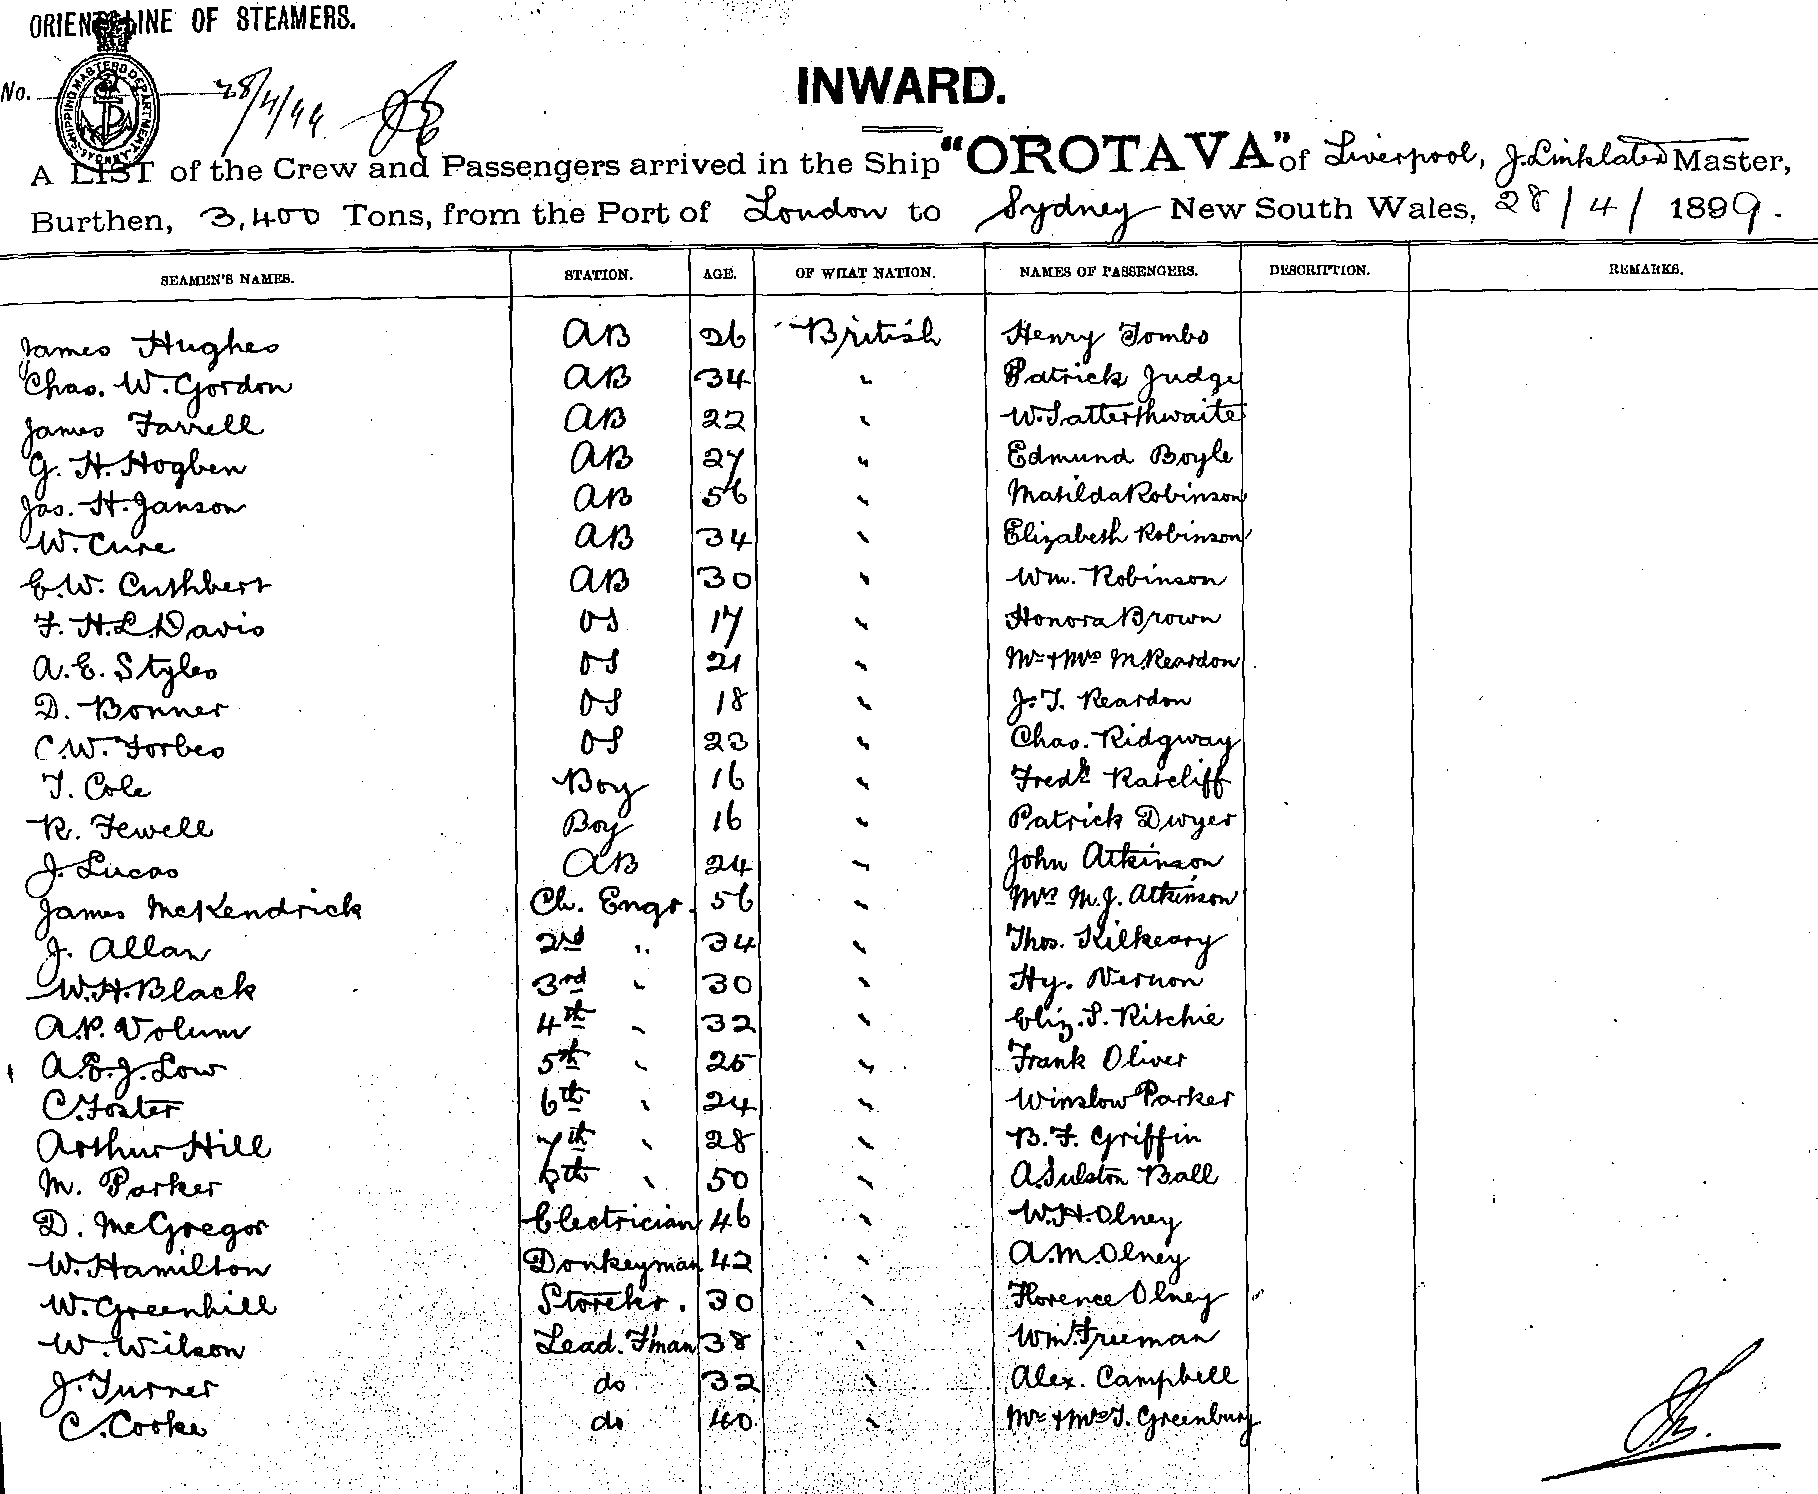 ORIENT LINE OF STEAMERS.
No. 28/4/99
SHIPPING MASTERS DEPARTMENT SYDNEY
INWARD.
A LIST of the Crew and Passengers arrived in the Ship "OROTAVA" of Liverpool, J. Linklater Master,
Burthen, 3,400 Tons, from the Port of London to Sydney New South Wales, 28 / 4 / 1899.
SEAMEN'S NAMES. STATION. AGE. OF WHAT NATION. NAMES OF PASSENGERS. DESCRIPTION. REMARKS.
James Hughes AB 26 British Henry Tombs
Chas. W. Gordon AB 34 " Patrick Judge
James Farrell AB 22 " W. Satterthwaite
G. H. Hogben AB 27 " Edmund Boyle
Jas. H. Janson AB 56 " Matilda Robinson
W. Cure AB 34 " Elizabeth Robinson
E. W. Cuthbert AB 30 " Wm. Robinson
F. H. L. Davis OS 17 " Honora Brown
A. E. Styles OS 21 " Mr & Mrs M. Reardon
D. Bonner OS 18 " J. T. Reardon
C. W. Forbes OS 23 " Chas. Ridgway
T. Cole Boy 16 " Fredk Ratcliff
R. Fewell Boy 16 " Patrick Dwyer
J. Lucas AB 24 " John Atkinson
James McKendrick Ch. Engr. 56 " Mrs M. J. Atkinson
J. Allan 2nd " 34 " Thos. Kilkeary
W. H. Black 3rd " 30 " Hy. Vernon
A. P. Volum 4th " 32 " Eliz. S. Ritchie
A. E. J. Low 5th " 25 " Frank Oliver
C. Foster 6th " 24 " Winslow Parker
Arthur Hill 7th " 28 " B. F. Griffin
M. Parker " 50 " A. Sulston Ball
D. McGregor Electrician 46 " W. H. Olney
W. Hamilton Donkeyman 42 " A. M. Olney
W. Greenhill Storekr. 30 " Florence Olney
W. Wilson Lead. Fman 38 " Wm. Freeman
J. Turner do 32 " Alex. Campbell
C. Cooke do 40 " Mr & Mrs T. Greenbury